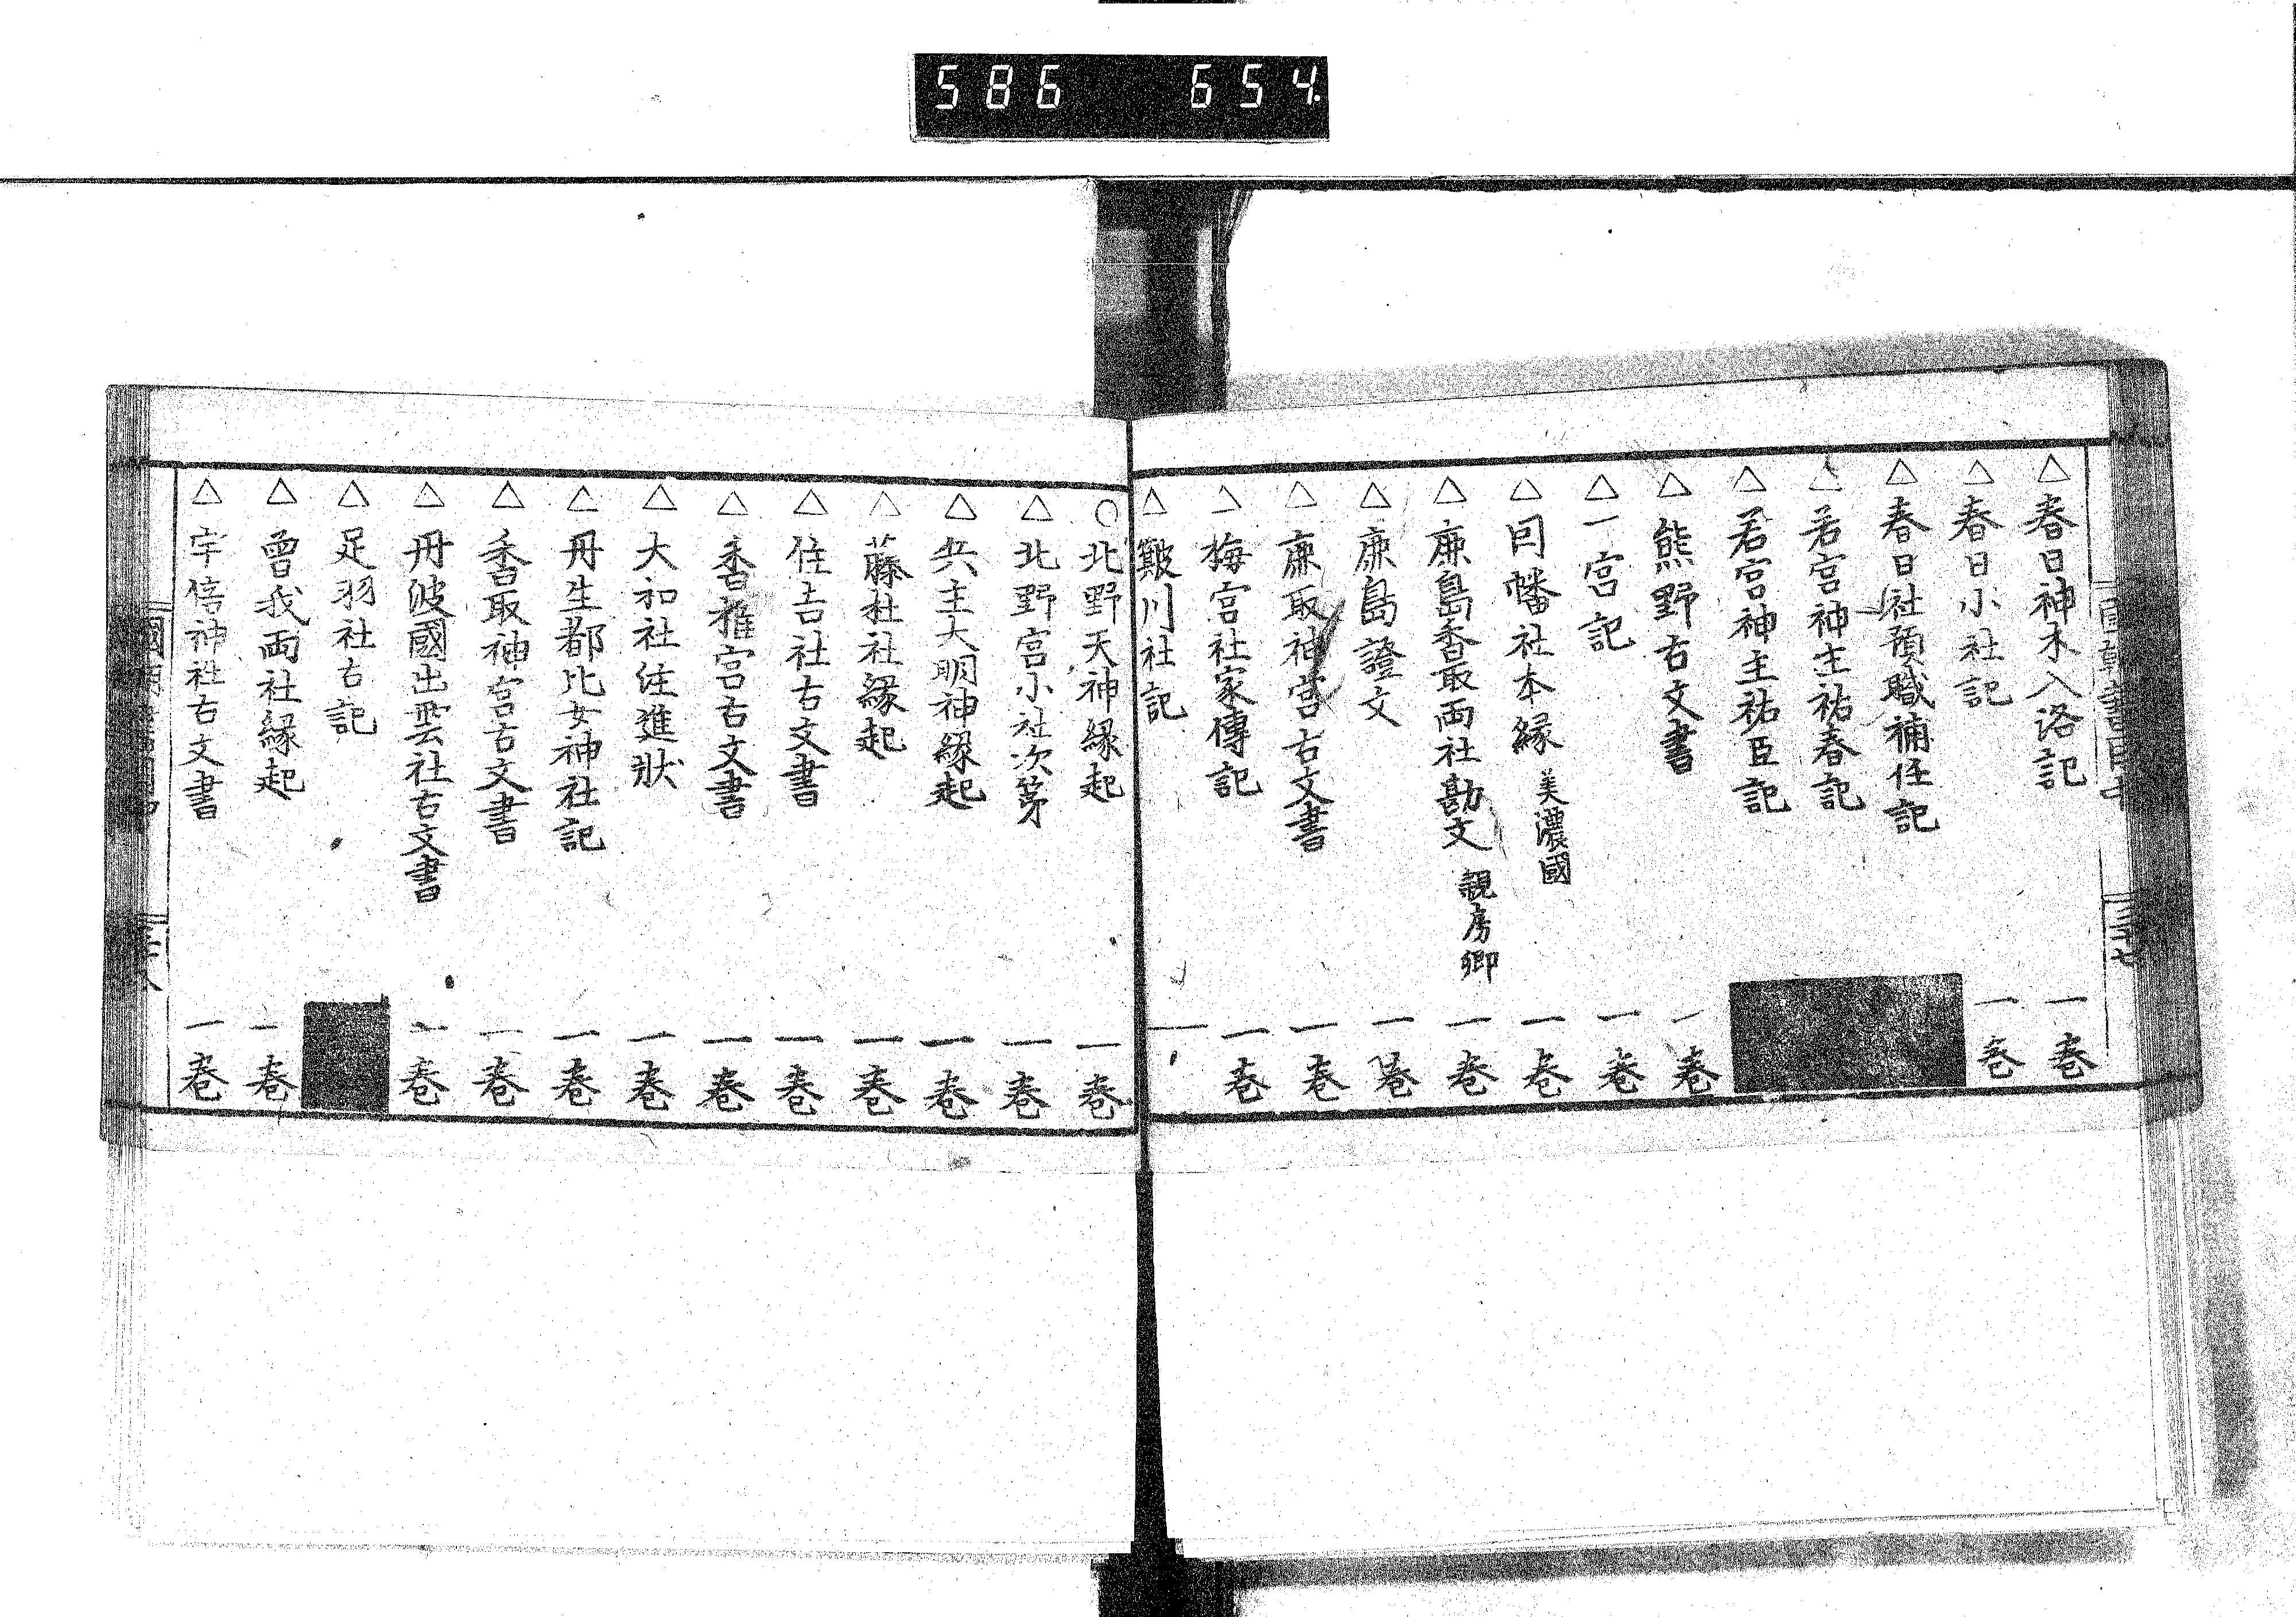 586 654
△春日神木入洛記 一卷
△春日小社記 一卷
△春日社預職補任記
△若宮神主祐春記
△若宮神主祐臣記
△熊野古文書 一卷
△一宮記 一卷
△因幡社本縁 美濃國 一卷
△鹿島香取両社勘文 親房卿 一卷
△鹿島證文 一卷
△鹿取神宮古文書 一卷
△梅宮社家傳記 一卷
△川社記 一
○北野天神縁起 一卷
△北野宮小社次第 一卷
△兵主大明神縁起 一卷
△藤杜社縁起 一卷
△住吉社古文書 一卷
△香推宮古文書 一卷
△大和社注進狀 一卷
△丹生都比女神社記 一卷
△香取神宮古文書 一卷
△丹波國出雲社古文書 一卷
△足羽社古記
△曽我両社縁起 一卷
△宇倍神社古文書 一卷